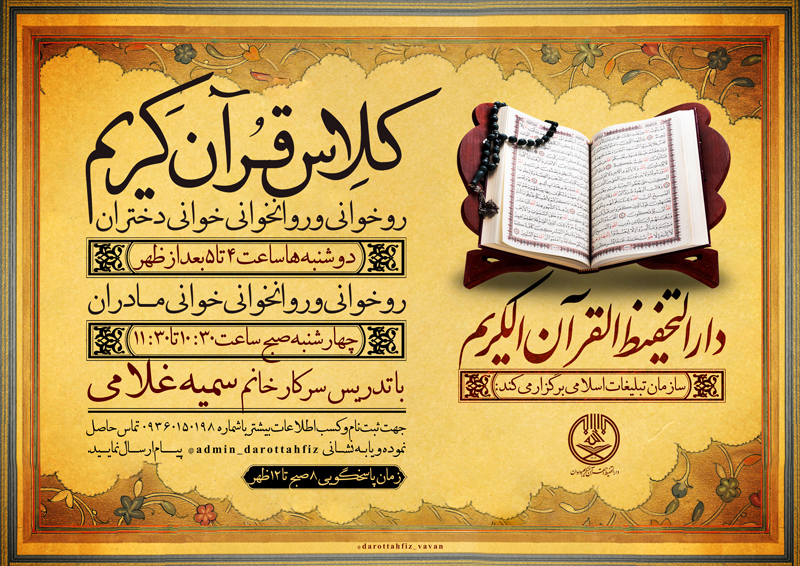 کلاس قرآن کریم
روخوانی و روانخوانی خوانی دختران
دوشنبه ها ساعت ۴ تا ۵ بعد از ظهر
روخوانی و روانخوانی خوانی مادران
چهارشنبه صبح ساعت ۱۰:۳۰ تا ۱۱:۳۰
با تدریس سرکار خانم سمیه غلامی
جهت ثبت نام و کسب اطلاعات بیشتر با شماره ۰۹۳۶۰۱۵۰۱۹۸ تماس حاصل
نموده و یا به نشانی @admin_darottahfiz پیام ارسال نمایید.
زمان پاسخگویی ۸ صبح تا ۱۲ ظهر
دارالتحفیظ القرآن الکریم
سازمان تبلیغات اسلامی برگزار می کند:
@darottahfiz_vavan